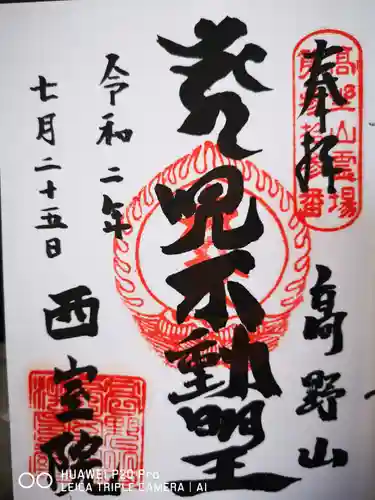 奉拝
高野山霊場
高野山
不動明王
令和二年
七月二十五日
西室院
HUAWEI P20 Pro
LEICA TRIPLE CAMERA | AI